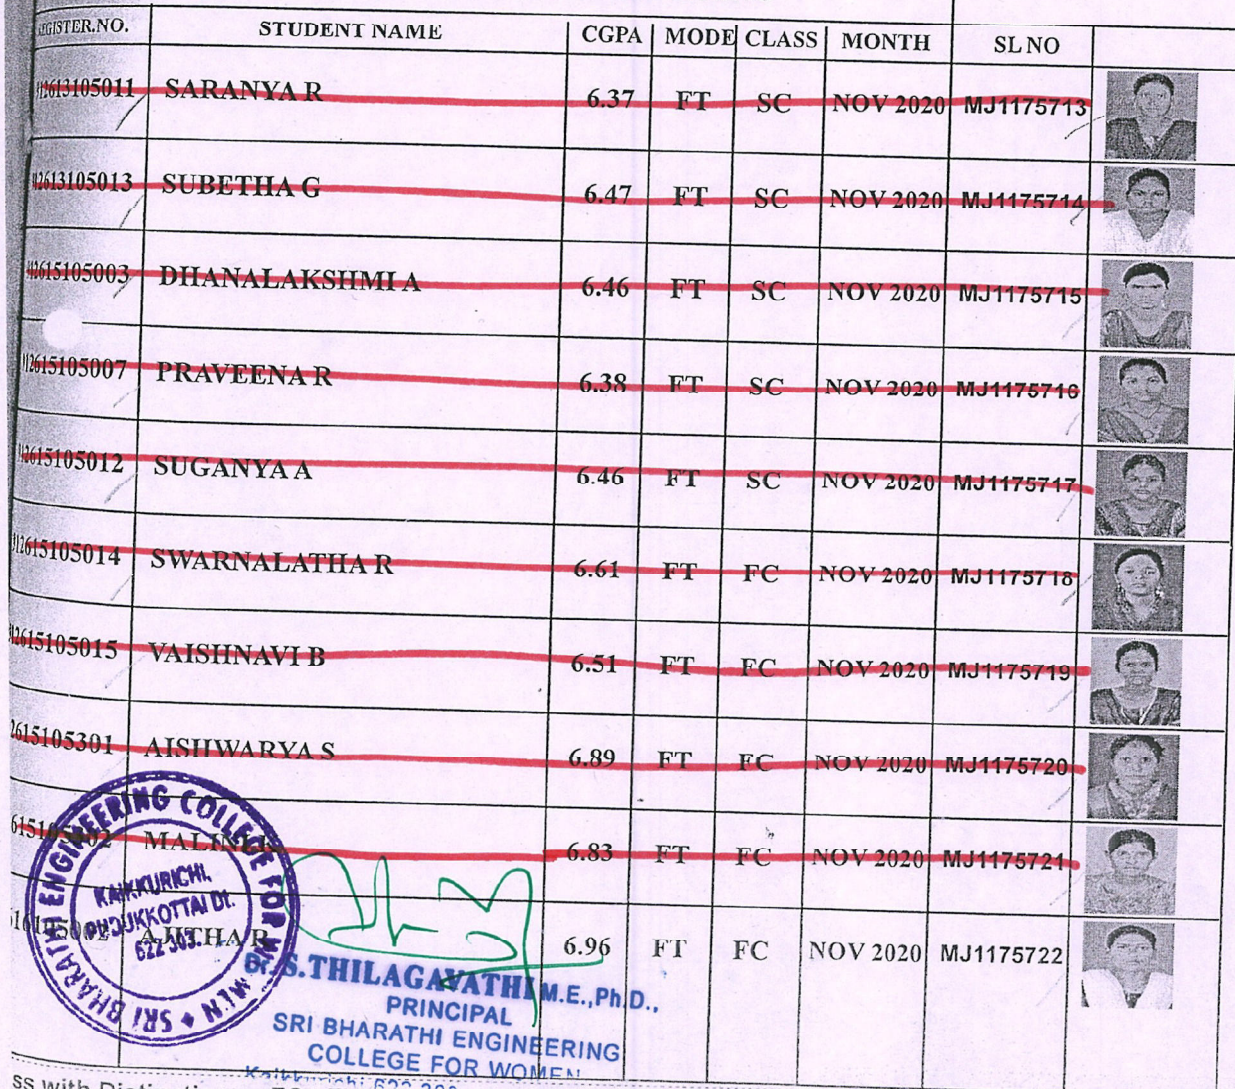 REGISTER.NO. STUDENT NAME CGPA MODE CLASS MONTH SL NO
912613105011 SARANYA R 6.37 FT SC NOV 2020 MJ1175713
912613105013 SUBETHA G 6.47 FT SC NOV 2020 MJ1175714
912615105003 DHANALAKSHMI A 6.46 FT SC NOV 2020 MJ1175715
912615105007 PRAVEENA R 6.38 FT SC NOV 2020 MJ1175716
912615105012 SUGANYA A 6.46 FT SC NOV 2020 MJ1175717
912615105014 SWARNALATHA R 6.61 FT FC NOV 2020 MJ1175718
912615105015 VAISHNAVI B 6.51 FT FC NOV 2020 MJ1175719
2615105301 AISHWARYA S 6.89 FT FC NOV 2020 MJ1175720
6.83 FT FC NOV 2020 MJ1175721
AJITHA R 6.96 FT FC NOV 2020 MJ1175722
SRI BHARATHI ENGINEERING COLLEGE FOR WOMEN
KAIKKURICHI.
PUDUKKOTTAI Dt.
622 303.
Dr. S.THILAGAVATHI M.E.,Ph.D.,
PRINCIPAL
SRI BHARATHI ENGINEERING
COLLEGE FOR WOMEN
Kaikkurichi
ss with